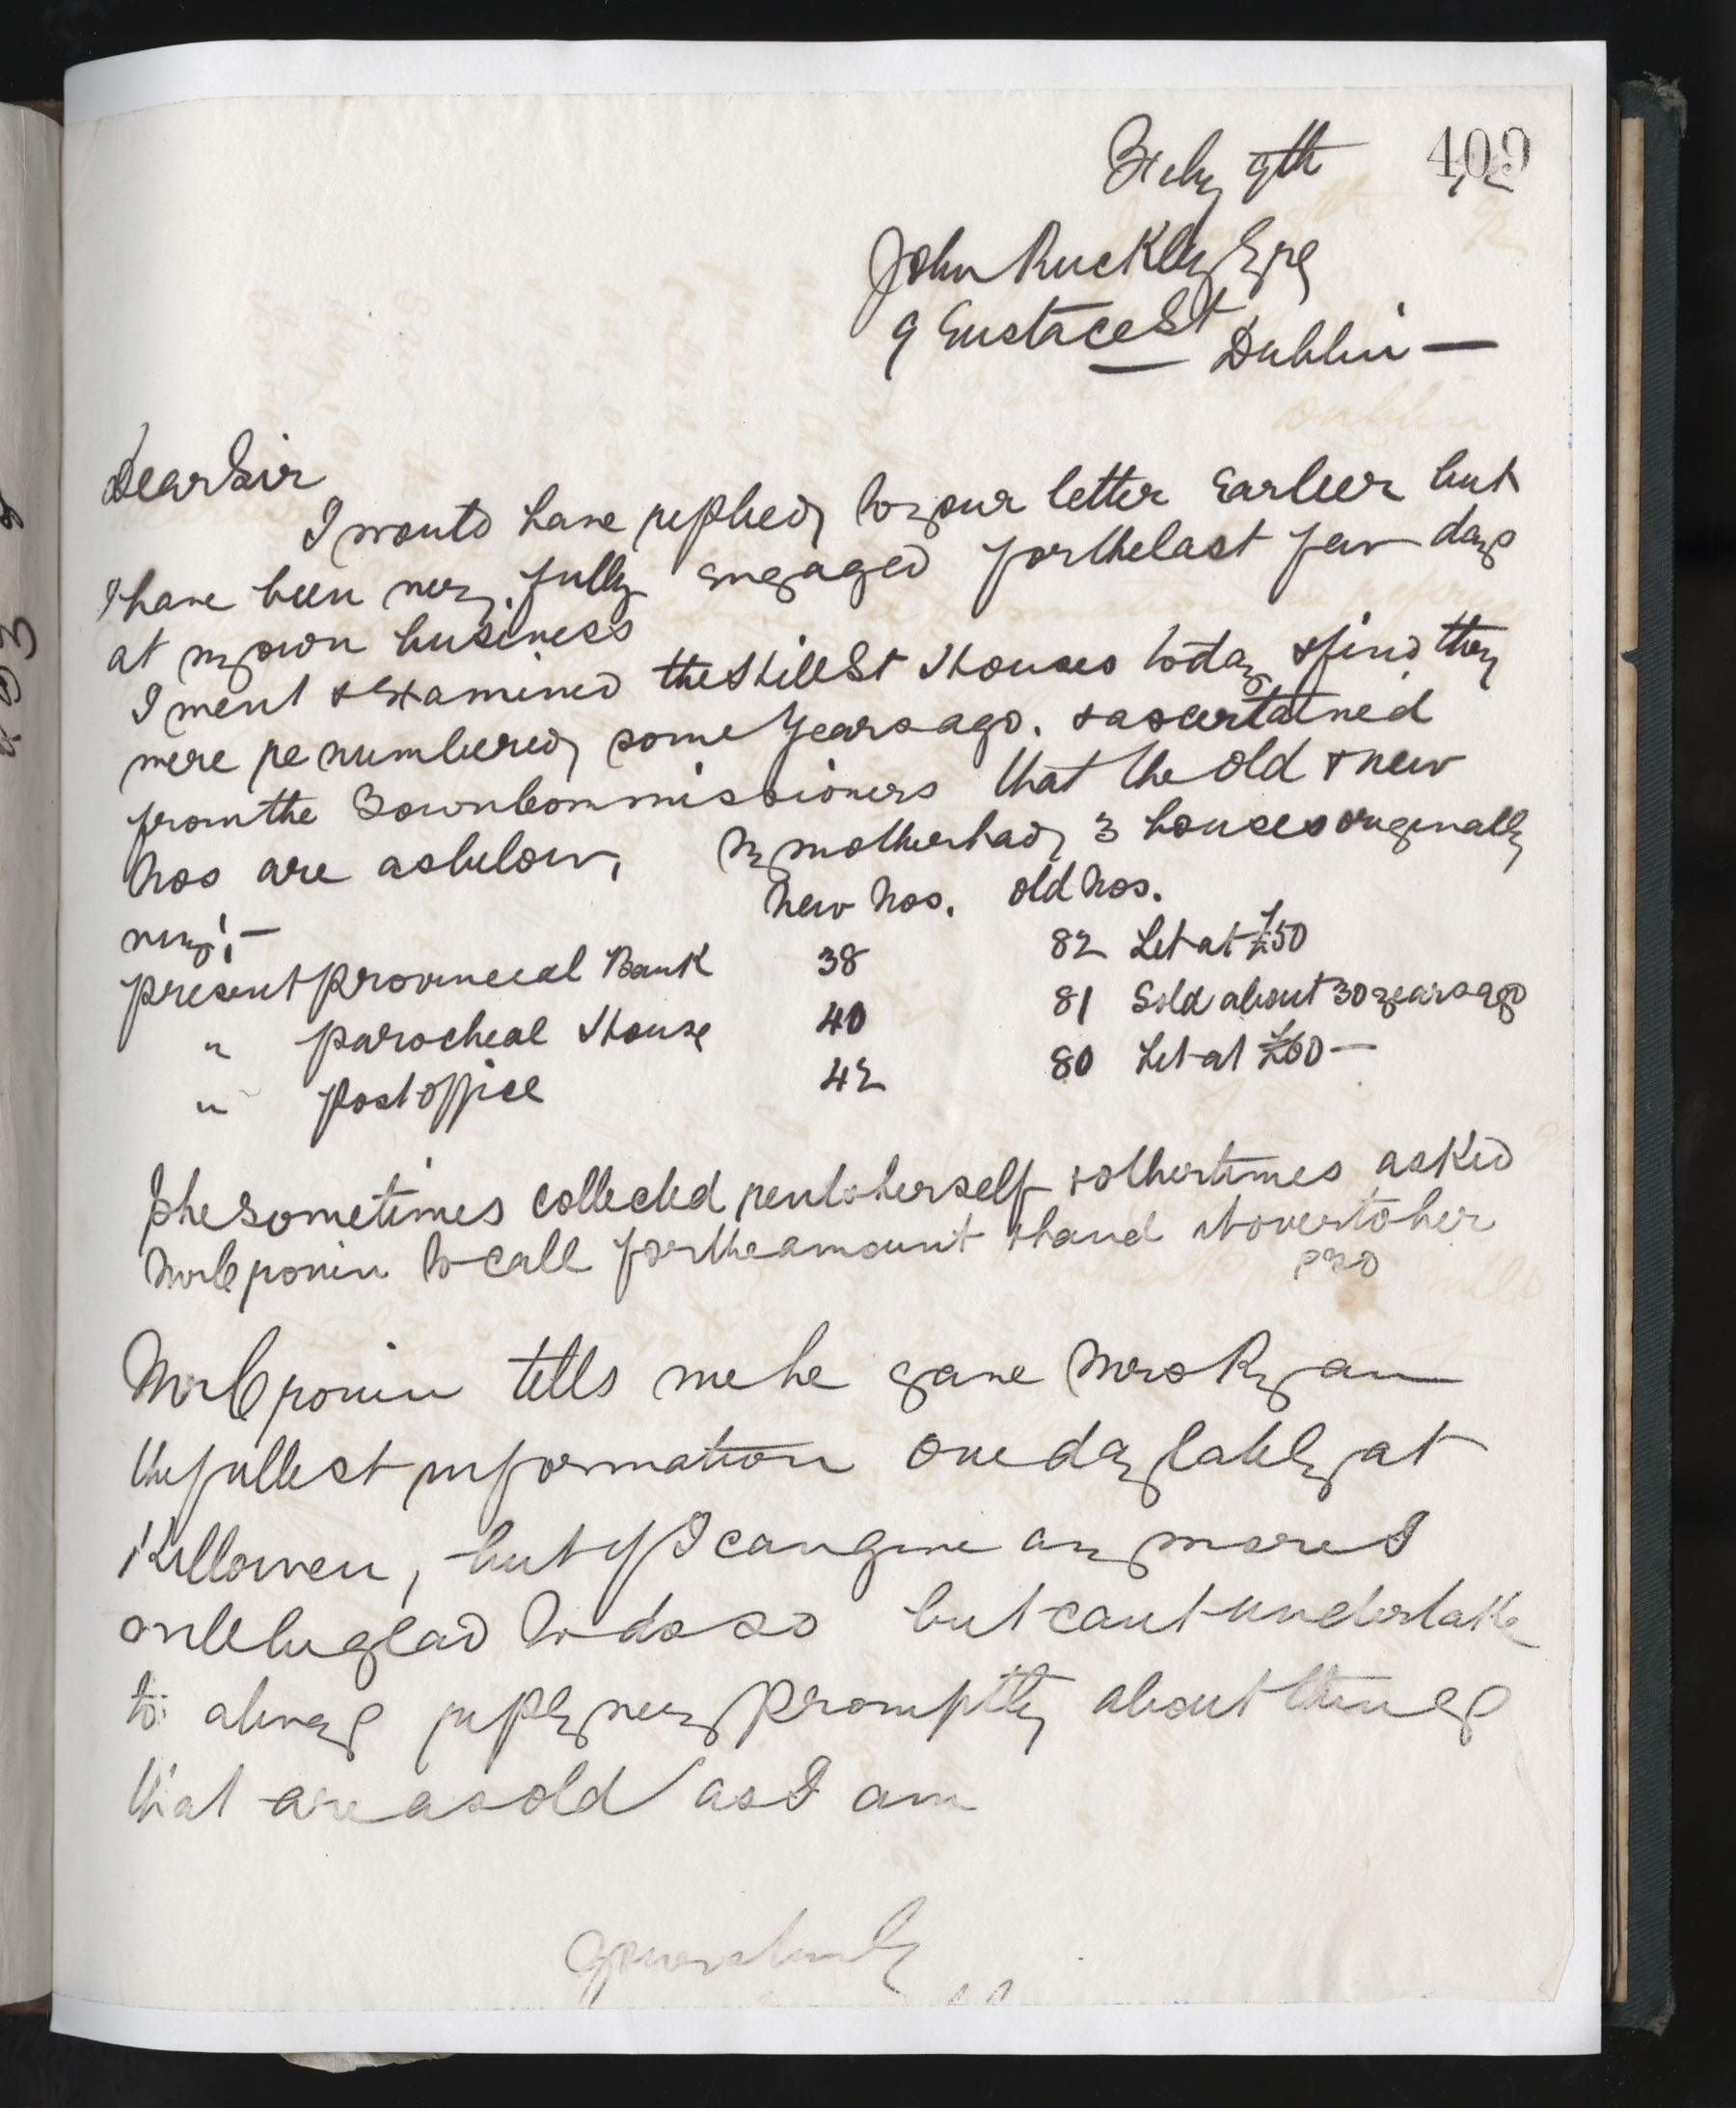 409
Feby 9th
John Ruckley Esq
9 Eustace St
Dublin —
Dear Sir
I would have replied to your letter Earlier but
I have been very fully engaged for the last few days
at my own business
I went & Examined the Hill St Houses today & find they
were re numbered some years ago. & ascertained
from the Town Commissioners that the old & new
Nos are as below, My mother had 3 houses originally
New Nos. old Nos.
viz;—
present provincial Bank 38 82 Let at £50
" parochial House 40 81 Sold about 30 years ago
" post office 42 80 Let at £60 —
She sometimes collected rents herself & other times asked
Mr Cronin to call for the amount & hand it over to her
PTO
Mr Cronin tells me he gave Mrs Ryan
the fullest information one day lately at
Killowen, but if I can give any more I
will be glad to do so but cant undertake
to always reply very promptly about things
that are as old as I am
Yours truly